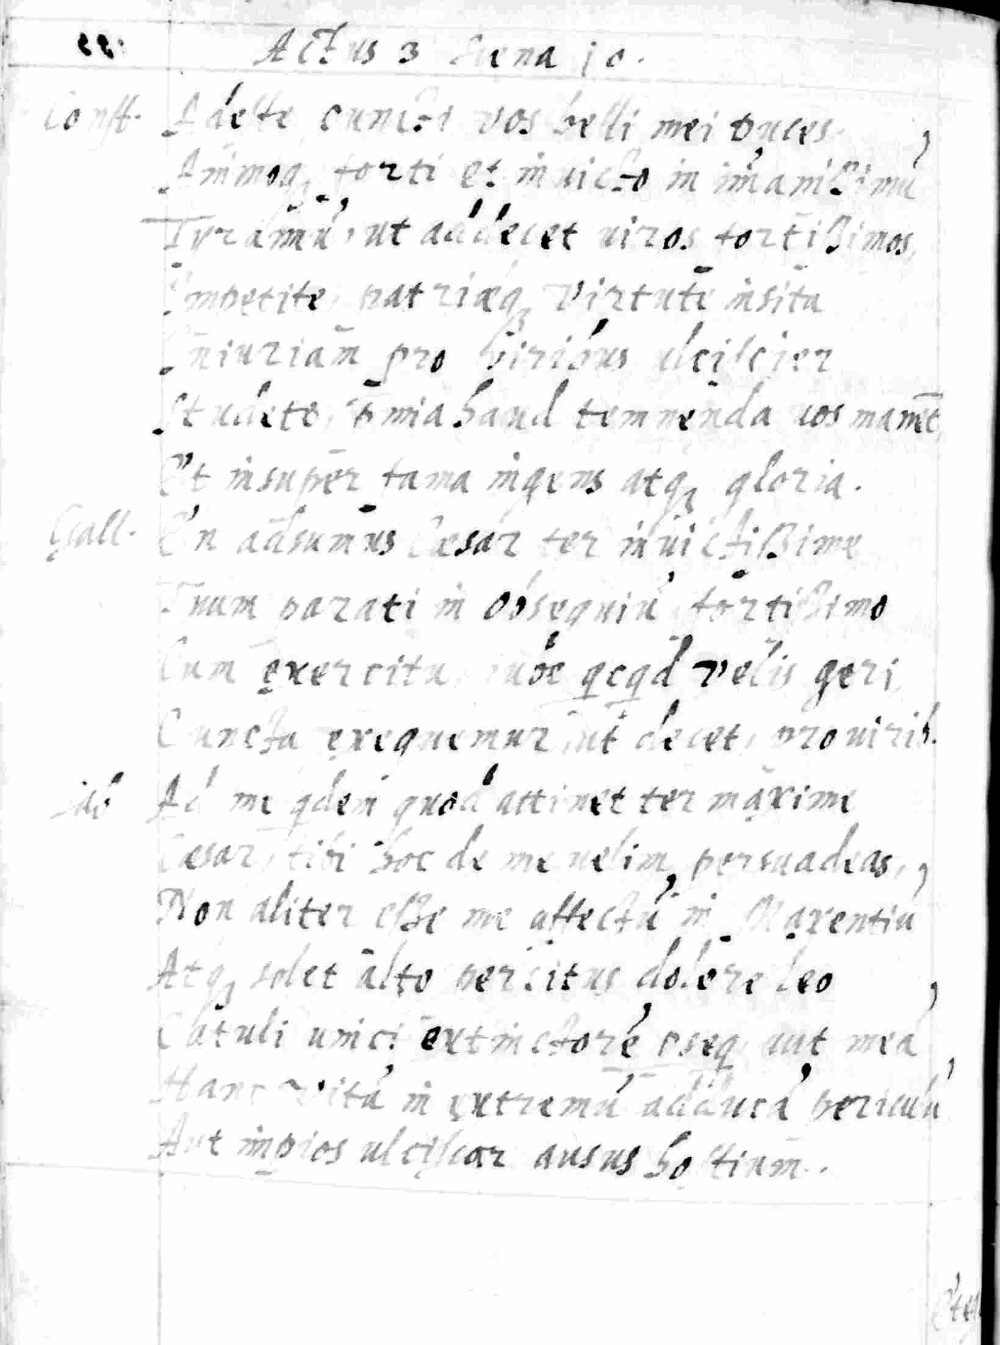 Actus 3 Scena 10.
Const. Adeste cuncti vos belli mei duces
Animoq; forti et invicto in imanissimū
Tyrānū, ut addecet viros fortissimos,
Impetite, patriæq; virtute insita
Iniuriam pro viribus ulciscier
Studete, pmia haud temnenda vos manēt,
Et insuper fama ingens atq; gloria.
Gall. En adsumus Cæsar ter invictissime
Tuum parati in obsequiū fortissimo
Cum exercitu, iube qcqd velis geri,
Cuncta exequemur, ut decet, pro virib.
Lab Ad me qdem quod attinet ter maxime
Cæsar, tibi hoc de me velim persuadeas,
Non aliter esse me affectū in Maxentiū
Atq; solet alto percitus dolore leo
Catuli unici extinctorē cseq, aut meā
Hanc vitā in extremū adducā periculū
Aut impios ulciscar ausus hostium.